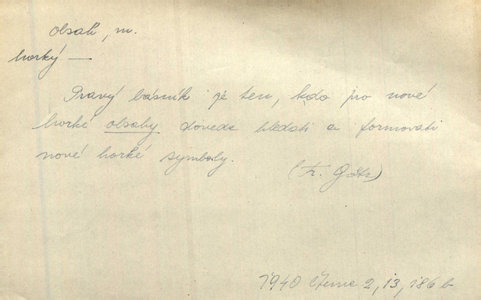 obsah, m.
horký —
Pravý básník je ten, kdo pro nové
horké obsahy dovede hledati a formovati
nové horké symboly.
(Fr. Götz)
1940 2, 13, 186 b